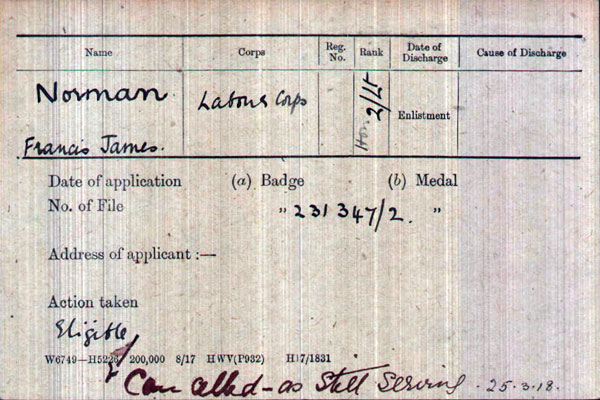 Name Corps Reg. No. Rank Date of Discharge Cause of Discharge
Norman Labour Corps Hon. 2/Lt Enlistment
Francis James.
Date of application (a) Badge (b) Medal
No. of File " 231347/2. "
Address of applicant :—
Action taken
Eligible
W6749—H5226 200,000 8/17 HWV(P932) H17/1831
Cancelled - as Still Serving . 25.3.18.